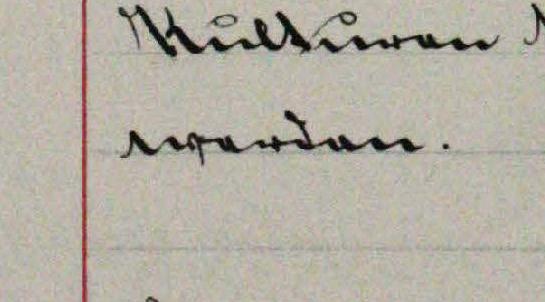 Kulturen
werden.